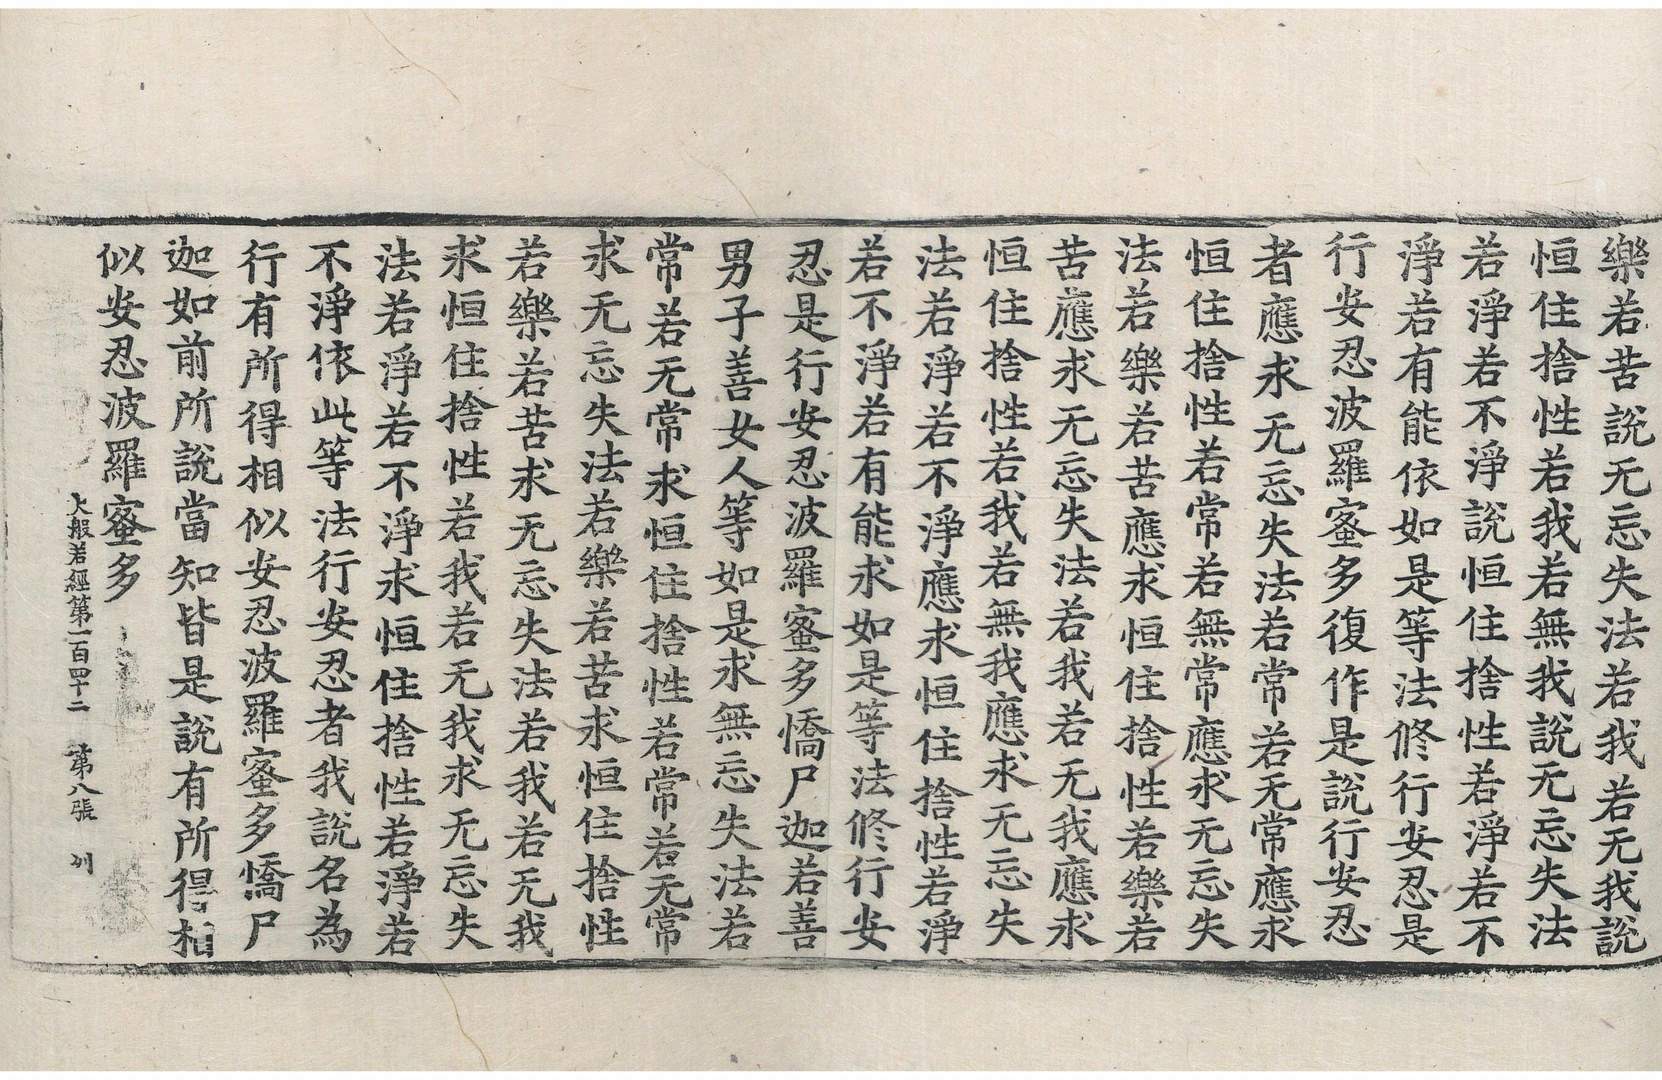 樂若苦說无忘失法若我若无我說
恒住捨性若我若無我說无忘失法
若淨若不淨說恒住捨性若淨若不
淨若有能依如是等法修行安忍是
行安忍波羅蜜多復作是說行安忍
者應求无忘失法若常若无常應求
恒住捨性若常若無常應求无忘失
法若樂若苦應求恒住捨性若樂若
苦應求无忘失法若我若无我應求
恒住捨性若我若無我應求无忘失
法若淨若不淨應求恒住捨性若淨
若不淨若有能求如是等法修行安
忍是行安忍波羅蜜多憍尸迦若善
男子善女人等如是求無忘失法若
常若无常求恒住捨性若常若无常
求无忘失法若樂若苦求恒住捨性
若樂若苦求无忘失法若我若无我
求恒住捨性若我若无我求无忘失
法若淨若不淨求恒住捨性若淨若
不淨依此等法行安忍者我說名為
行有所得相似安忍波羅蜜多憍尸
迦如前所說當知皆是說有所得相
似安忍波羅蜜多
大般若經第一百四十二 第八張